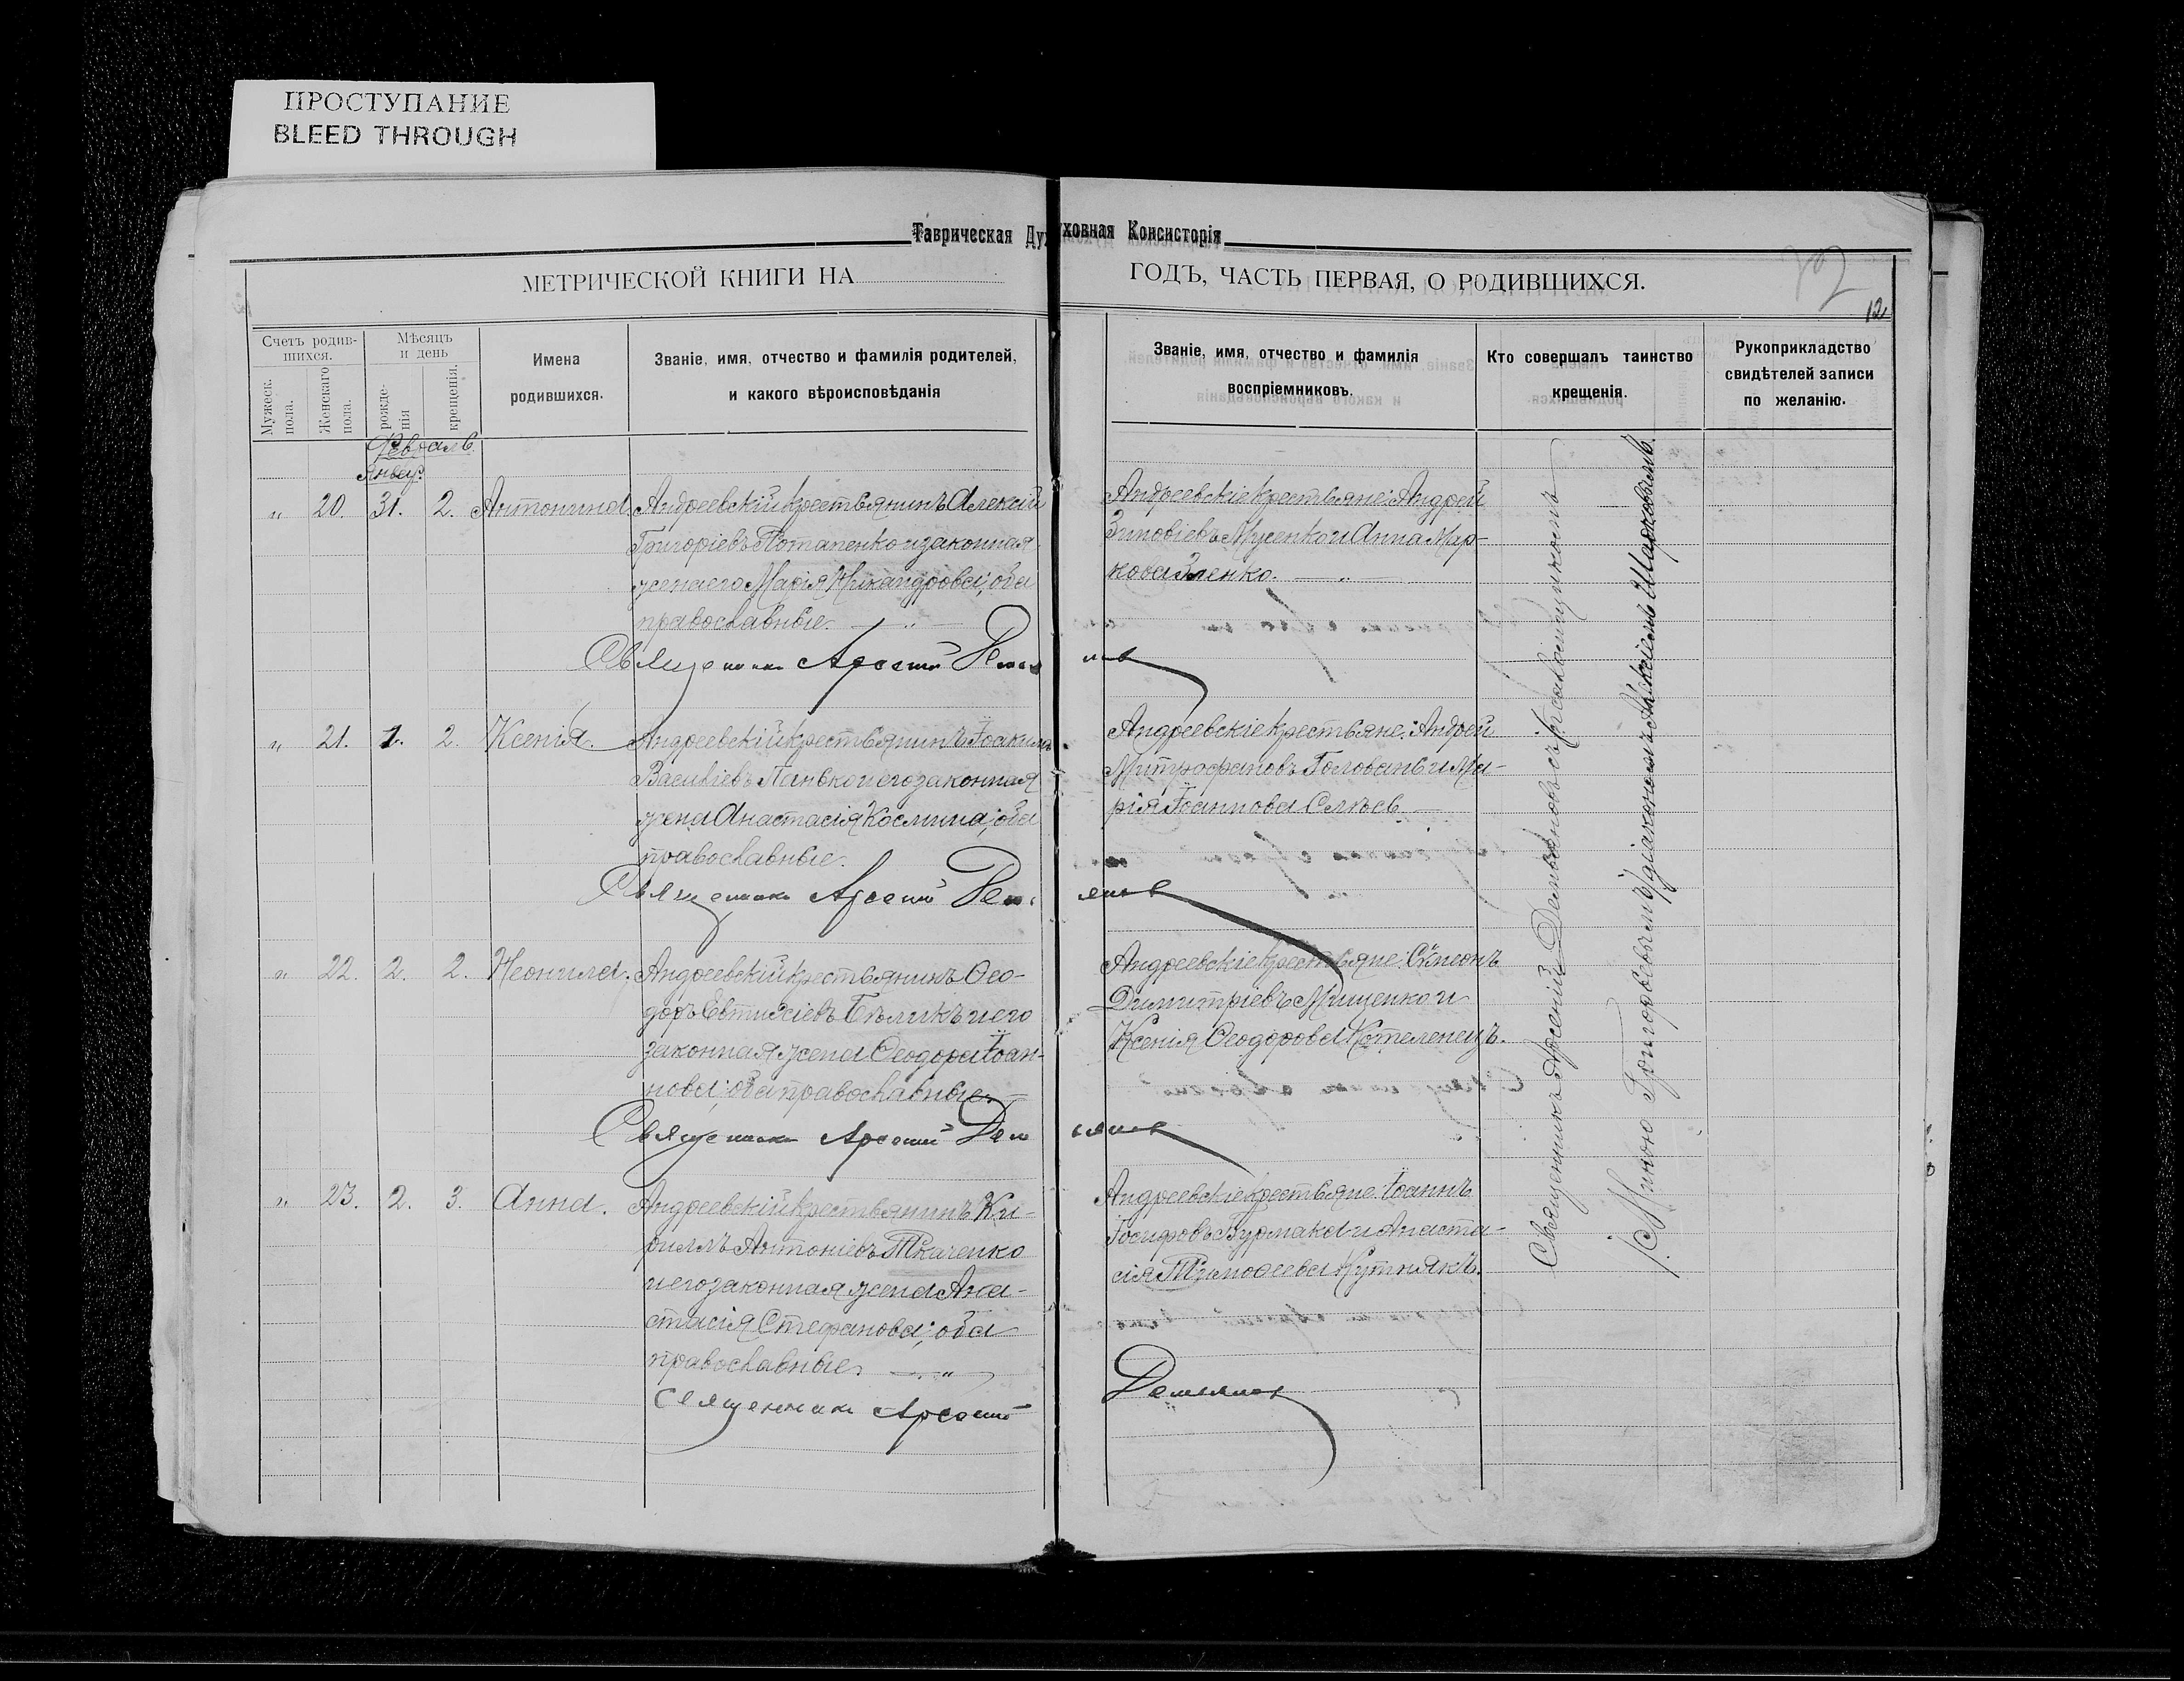 ПРОСТУПАНИЕ
BLEED THROUGH
Таврическая Духовная Консисторія
МЕТРИЧЕСКОЙ КНИГИ НА ГОДЪ, ЧАСТЬ ПЕРВАЯ, О РОДИВШИХСЯ.
12
Счетъ родив-
шихся.
Мужеск.
пола.
Женскаго
пола.
Мѣсяцъ
и день
рожде-
нія
крещенія.
Имена
родившихся.
Званіе, имя, отчество и фамилія родителей,
и какого вѣроисповѣданія
Званіе, имя, отчество и фамилія
воспріемниковъ.
Кто совершалъ таинство
крещенія.
Рукоприкладство
свидѣтелей записи
по желанію.
Февраль
Январ.
" 20. 31. 2. Антонина.
Андреевскій крестьянинъ Алексій
Григоріевъ Потапенко и законная
жена его Марія Никандрова; оба
православные. — " —
Священникъ Арсеній
Андреевскіе крестьяне: Андрей
Зиновіевъ Мусенко и Анна Мар-
кова Зленко. — " —
" 21. 1. 2. Ксенія.
Андреевскій крестьянинъ Іоакимъ
Василіевъ Панько и его законная
жена Анастасія Космина; оба
православные.
Священникъ Арсеній
Андреевскіе крестьяне: Андрей
Митрофановъ Головань и Ма-
рія Іоаннова
" 22. 2. 2. Неонила.
Андреевскій крестьянинъ Ѳео-
доръ Евтихіевъ Бѣликъ и его
законная жена Ѳеодора Іоан-
нова; оба православные. —
Священникъ Арсеній
Андреевскіе крестьяне: Сѵмеонъ
Димитріевъ Мищенко и
Ксенія Ѳеодорова Котеленецъ.
" 23. 2. 3. Анна.
Андреевскій крестьянинъ Ки-
риллъ Антоніевъ Ткаченко
и его законная жена Ана-
стасія Стефанова; оба
православные. — " —
Священникъ Арсеній Демьяновъ
Андреевскіе крестьяне: Іоаннъ
Іосифовъ Бурмака и Анаста-
сія Тимоѳеева Кутнякъ.
Священникъ Арсеній Демьяновъ съ псаломщикомъ
Миною Григорьевымъ и діакономъ Шарковымъ.